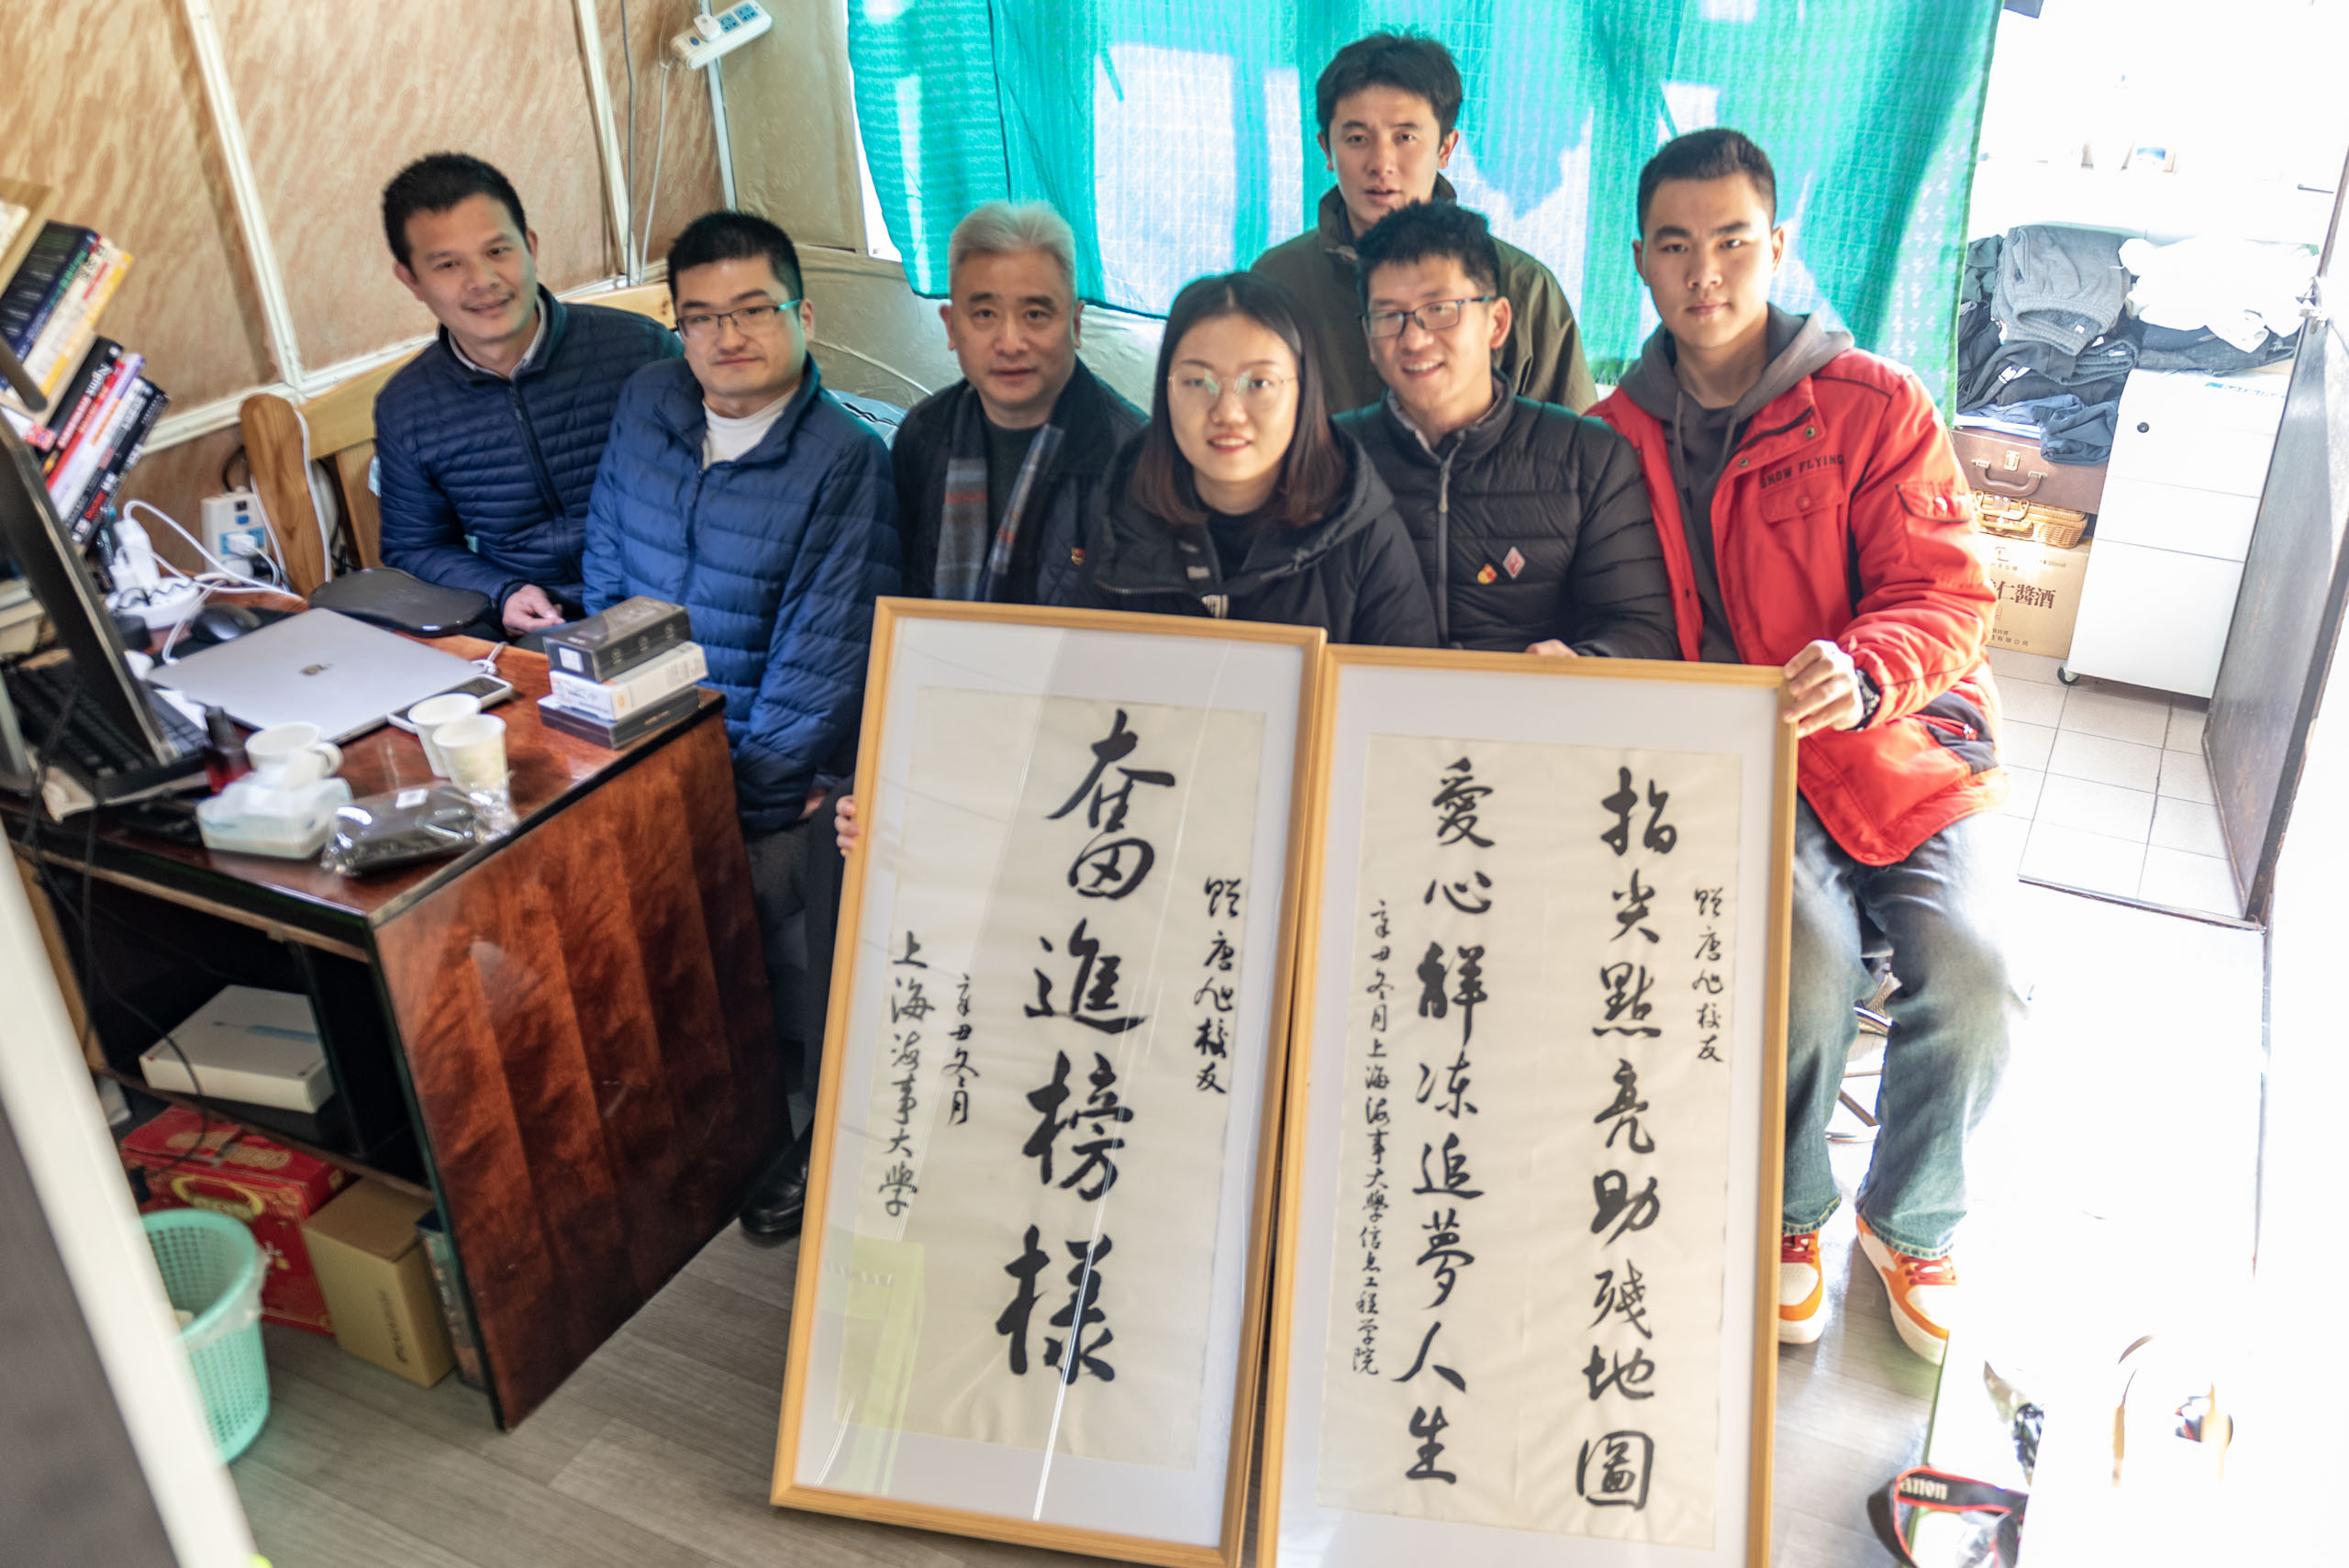 贈唐旭校友
奮進榜樣
辛丑冬月
上海海事大學
贈唐旭校友
指尖點亮助殘地圖
愛心解冻追夢人生
辛丑冬月上海海事大學信息工程学院
SNOW FLYING
仁醬酒
Nginx
Canon